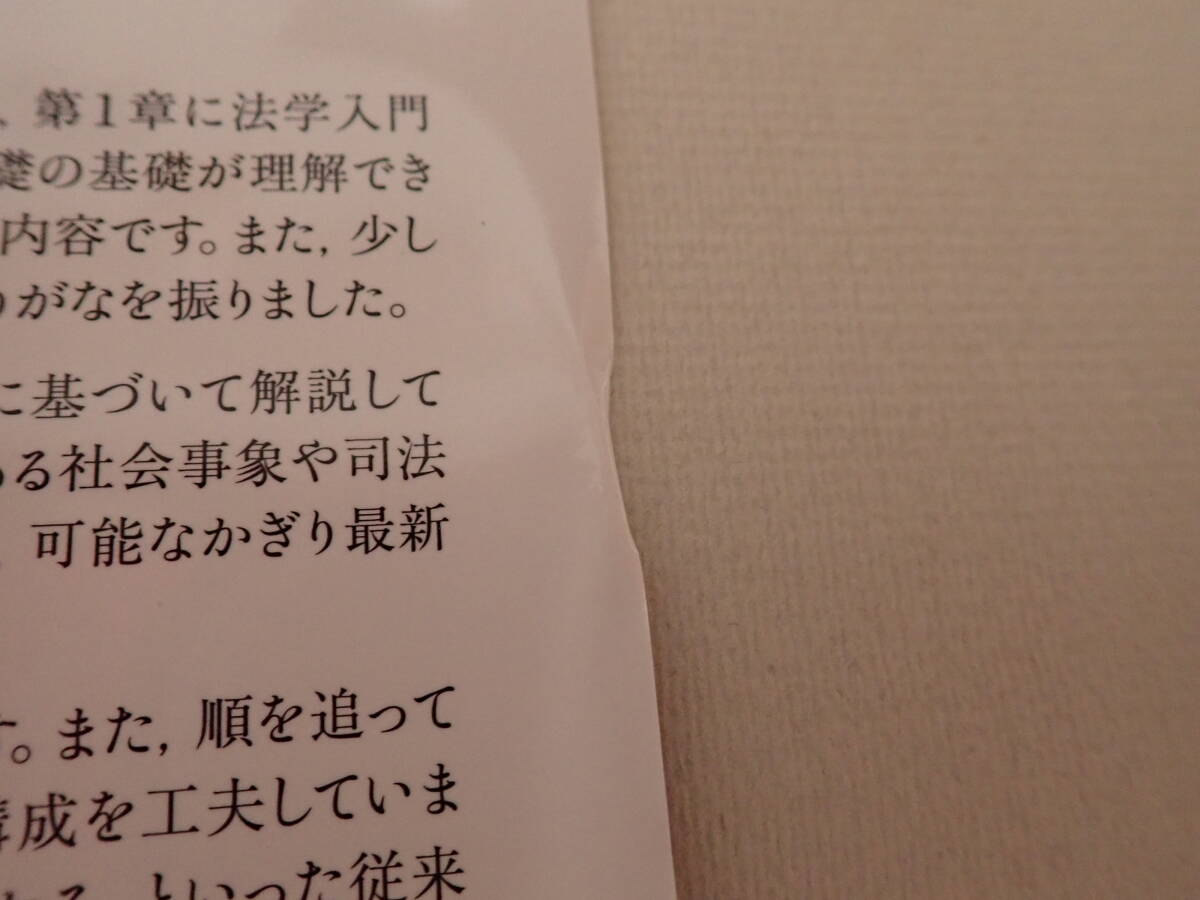 、第1章に法学入門
礎の基礎が理解でき
内容です。また，少し
りがなを振りました。
に基づいて解説して
ある社会事象や司法
可能なかぎり最新
す。また，順を追って
構成を工夫していま
といった従来